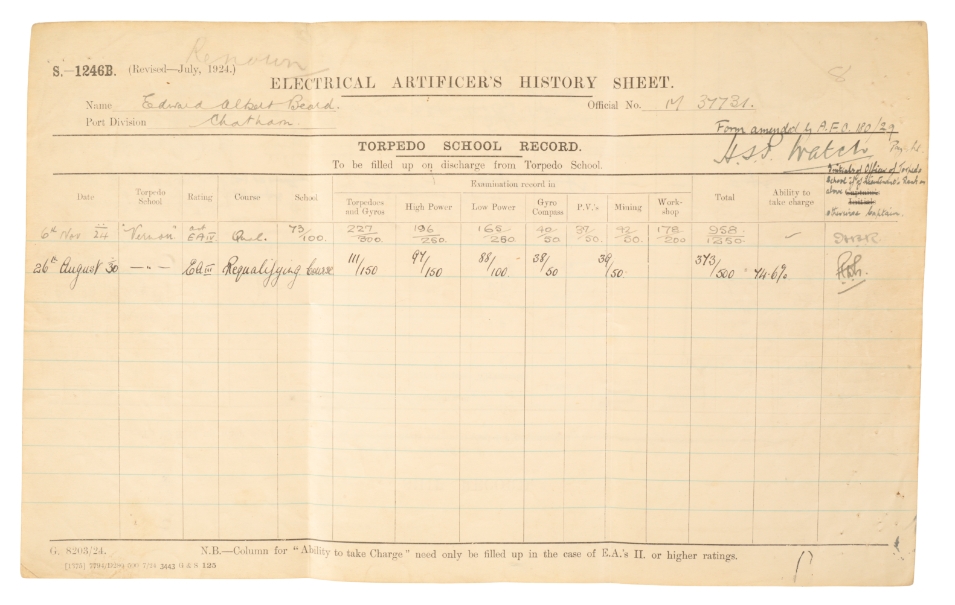 Renown
S.—1246B. (Revised—July, 1924.)
8
ELECTRICAL ARTIFICER'S HISTORY SHEET.
Name Edward Albert Beard. Official No. M 37731.
Port Division Chatham.
Form amended by A.F.O. 180/29
TORPEDO SCHOOL RECORD.
To be filled up on discharge from Torpedo School.
Initials of Officer of Torpedo School if of Lieutenant's Rank or above Captain's Initials otherwise Captain.
Examination record in
Date Torpedo School Rating Course School Torpedoes and Gyros High Power Low Power Gyro Compass P.V.'s Mining Workshop Total Ability to take charge
6th Nov 24 "Vernon" EA IV Qual. 73/100. 227/300 196/250. 165/250 40/50 37/50. 42/50. 178/200 958/1250 —
26th August 30 —"— EA III Requalifying Course 111/150 97/150 88/100 38/50 39/50. 373/500 74.6%
G. 8203/24. N.B.—Column for "Ability to take Charge" need only be filled up in the case of E.A.'s II. or higher ratings.
3443 G & S 125